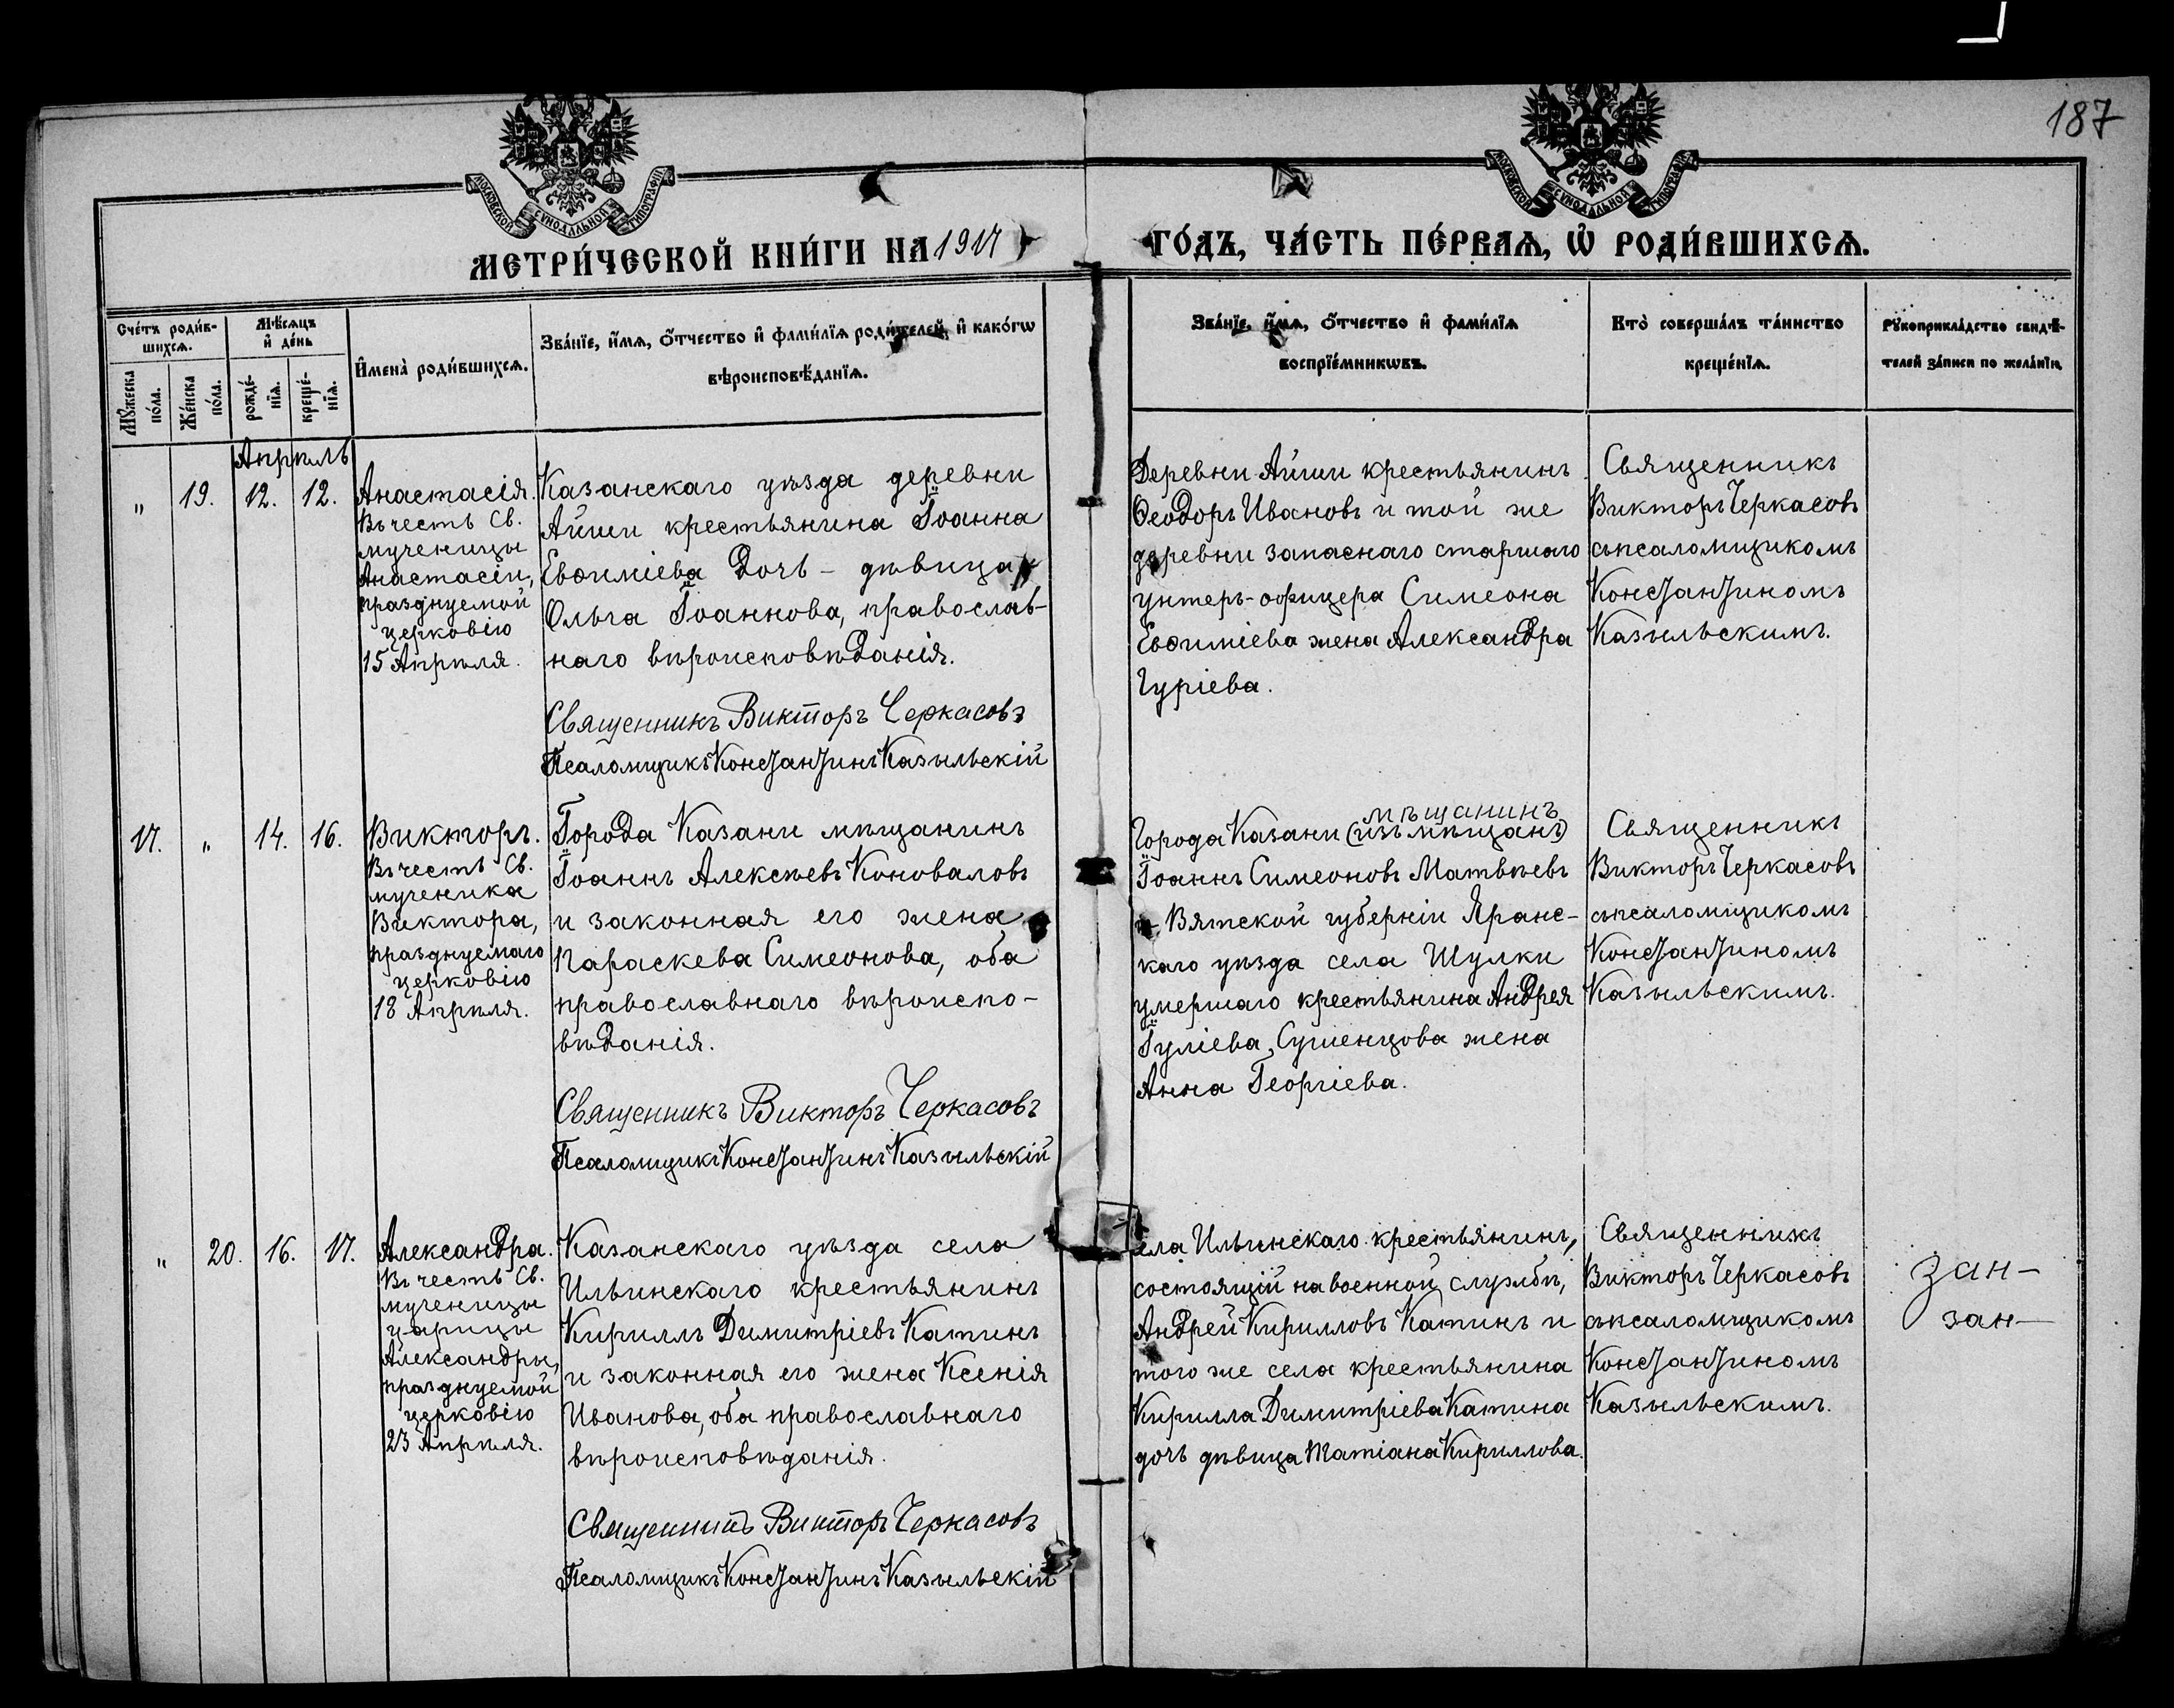 187
МОСКОВСКОЙ СУНОДАЛЬНОЙ ТИПОГРАФІИ
МОСКОВСКОЙ СУНОДАЛЬНОЙ ТИПОГРАФІИ
МЕТРИ́ЧЕСКОЙ КНИ́ГИ НА 1917
ГО́ДЪ, ЧА́СТЬ ПЕ́РВАѦ, Ѡ҆ РОДИ́ВШИХСѦ.
Сче́тъ роди́в-
шихсѧ.
Мꙋ́жеска по́ла.
Же́нска по́ла.
Мѣ́сѧцъ
и҆ де́нь
рожде́-
нїѧ.
креще́-
нїѧ.
И҆мена̀ роди́вшихсѧ.
Зва́нїе, и҆́мѧ, ѻ҆́тчество и҆ фамѝлїѧ роди́телей, и҆ како́гѡ
вѣроисповѣ́данїѧ.
Зва́нїе, и҆́мѧ, ѻ҆́тчество и҆ фами́лїѧ
воспрїе́мникѡвъ.
Кто̀ соверша́лъ та́инство
креще́нїѧ.
Рꙋкоприкла́дство свидѣ́-
телей за́писи по жела́нїю
Апрѣль
„ 19. 12. 12.
Анастасія.
Въ честь Св.
мученицы
Анастасіи,
празднуемой
церковію
15 Апрѣля.
Казанскаго уѣзда деревни
Айши крестьянина Іоанна
Евѳиміева дочь – дѣвица
Ольга Іоаннова, православ-
наго вѣроисповѣданія.
Священникъ Викторъ Черкасовъ
Псаломщикъ Константинъ Казыльскій
Деревни Айши крестьянинъ
Ѳеодоръ Ивановъ и той же
деревни запаснаго старшаго
унтеръ-офицера Симеона
Евѳиміева жена Александра
Гуріева.
Священникъ
Викторъ Черкасовъ
съ псаломщикомъ
Константиномъ
Казыльскимъ.
17. „ 14. 16.
Викторъ.
Въ честь Св.
мученика
Виктора,
празднуемаго
церковію
18 Апрѣля.
Города Казани мѣщанинъ
Іоаннъ Алексѣевъ Коноваловъ
и законная его жена
Параскева Симеонова, оба
православнаго вѣроиспо-
вѣданія.
Священникъ Викторъ Черкасовъ
Псаломщикъ Константинъ Казыльскій
мѣщанинъ
Города Казани (изъ мѣщанъ)
Іоаннъ Симеоновъ Матвѣевъ
и Вятской губерніи Яранс-
каго уѣзда села Шулки
умершаго крестьянина Андрея
Іуліева Сушенцова жена
Анна Георгіева.
Священникъ
Викторъ Черкасовъ
съ псаломщикомъ
Константиномъ
Казыльскимъ.
„ 20. 16. 17.
Александра.
Въ честь Св.
мученицы
царицы
Александры,
празднуемой
церковію
23 Апрѣля.
Казанскаго уѣзда села
Ильинскаго крестьянинъ
Кириллъ Димитріевъ Катинъ
и законная его жена Ксенія
Иванова, оба православнаго
вѣроисповѣданія.
Священникъ Викторъ Черкасовъ
Псаломщикъ Константинъ Казыльскій
ела Ильинскаго крестьянинъ,
состоящій на военной службѣ,
Андрей Кирилловъ Катинъ и
того же села крестьянина
Кирилла Димитріева Катина
дочь дѣвица Татіана Кириллова.
Священникъ
Викторъ Черкасовъ
съ псаломщикомъ
Константиномъ
Казыльскимъ.
Зан-
зан-